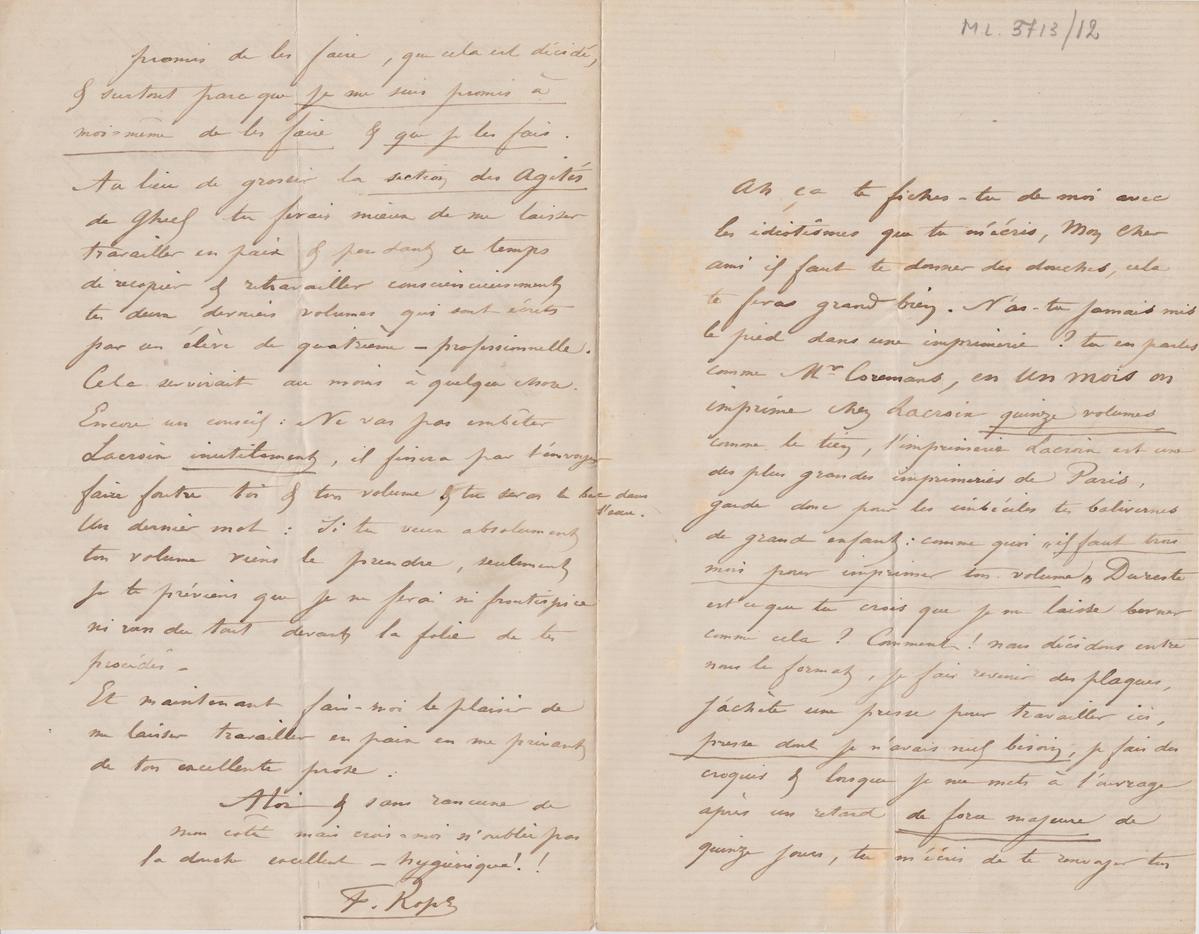 ML. 3713/12
Ah ça te fiches-tu de moi avec
les idiotismes que tu m'écris, Mon cher
ami il faut te donner des douches, cela
te feras grand bien. N'as-tu jamais mis
le pied dans une imprimerie ? tu en parles
comme Mr Coremans, en un mois on
imprime chez Lacroix quinze volumes
comme le tien, l'imprimerie Lacroix est une
des plus grandes imprimeries de Paris,
garde donc pour les imbéciles tes balivernes
de grand enfant : comme quoi „il faut trois
mois pour imprimer ton volume„ Dureste
est ce que tu crois que je me laisse berner
comme cela ? Comment ! nous décidons entre
nous le format, je fais revenir des plaques,
j'achète une presse pour travailler ici,
presse dont je n'avais nul besoin, je fais des
croquis & lorsque je me mets à l'ouvrage
après un retard de force majeure de
quinze jours, tu m'écris de te renvoyer ton
promis de les faire, que cela est décidé,
& surtout parce que je me suis promis à
moi-même de les faire & que je les fais.
Au lieu de grossir la section des Agités
de Gheel tu ferais mieux de me laisser
travailler en paix & pendant ce temps
de recopier & retravailler consciencieusement
tes deux derniers volumes qui sont écrits
par un élève de quatrième - professionnelle.
Cela servirait au moins à quelque chose.
Encore un conseil : Ne vas pas embêter
Lacroix inutilement, il finira par t'envoyer
faire foutre toi & ton volume & tu seras le bec dans
l'eau.
Un dernier mot : Si tu veux absolument
ton volume viens le prendre, seulement
je te préviens que je ne ferai ni frontispice
ni rien du tout devant la folie de tes
procédés -
Et maintenant fais-moi le plaisir de
me laisser travailler en paix en me privant
de ton excellente prose.
A toi & sans rancune de
mon côté mais crois-moi n'oublie pas
la douche excellent - hygiénique ! !
F. Rops